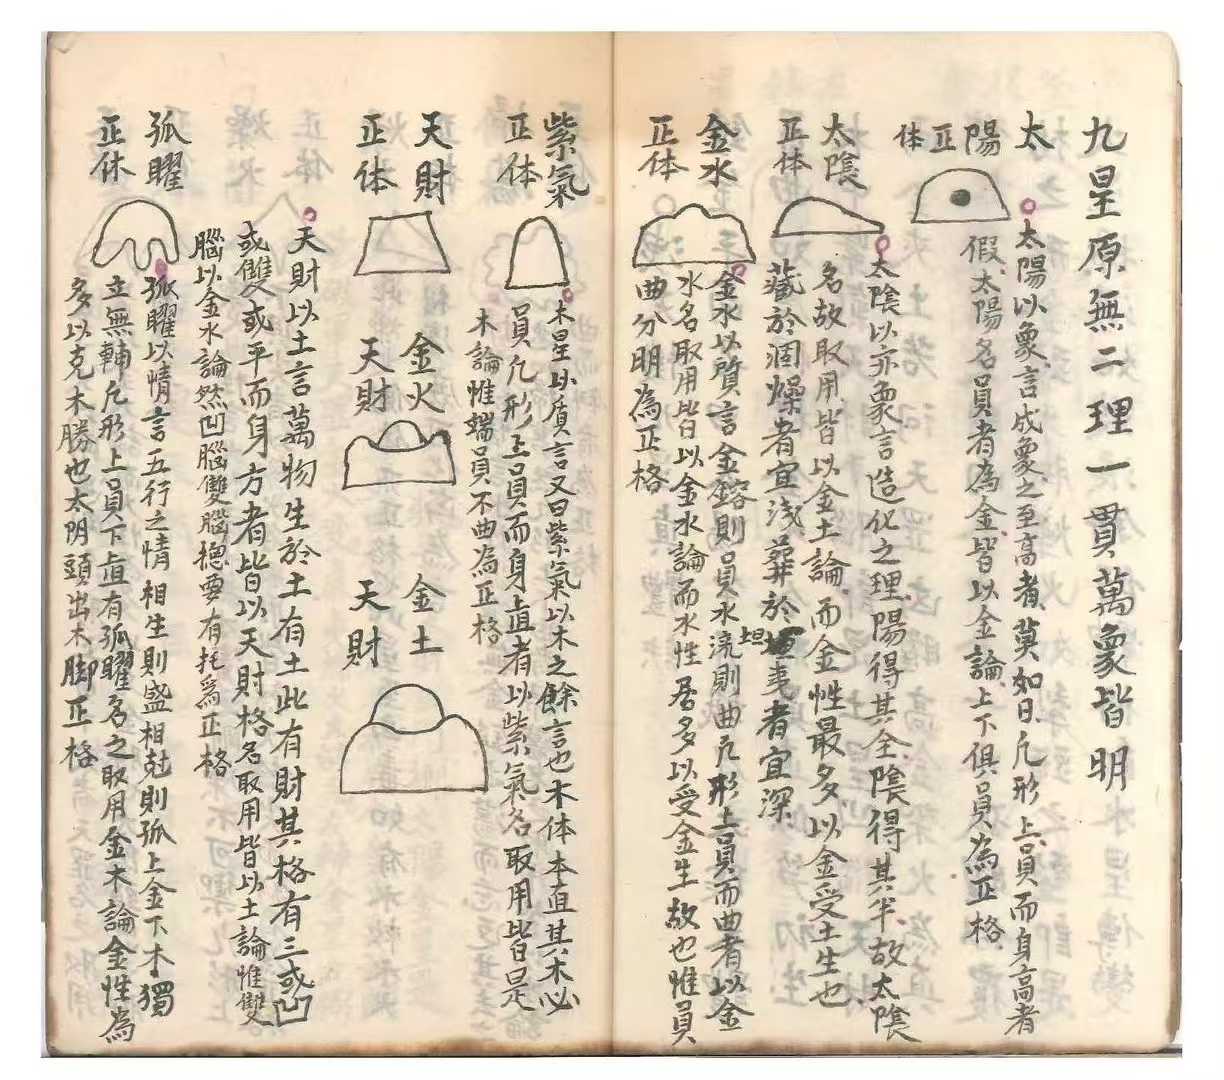 九星原無二理一貫萬象皆明
太陽正体
太陽以象言成象之至高者莫如日凡形上員而身高者
假太陽名員者為金皆以金論上下俱員為正格
太陰
正体
太陰以亦象言造化之理陽得其全陰得其半故太陰
名故取用皆以金土論而金性最多以金受土生也
藏於涸燥者宜浅葬於坦夷者宜深
金水
正体
金水以質言金鎔則員水流則曲凡形上員而曲者以金
水名取用皆以金水論而水性居多以受金生故也惟員
曲分明為正格
紫氣
正体
木星以质言又曰紫氣以木之餘言也木体本直其木必
員凡形上員而身直者以紫氣名取用皆是
木論惟端員不曲為正格
天財
正体
金火
天財
金土
天財
天財以土言萬物生於土有土此有財其格有三或凹
或雙或平而身方者皆以天財格名取用皆以土論惟雙
腦以金水論然凹腦雙腦摠要有托爲正格
孤曜
正体
孤曜以情言五行之情相生則盛相尅則孤上金下木獨
立無輔凡形上員下直有孤曜名之取用金木論金性為
多以克木勝也太阴頭出木脚正格